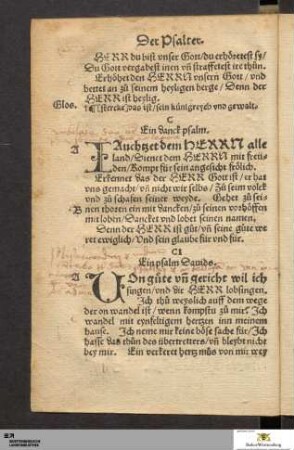 Der Psalter.
HERR du bist vnser Gott/du erhöretest sy/
Du Gott vergabest inen vñ straffetest ir thůn.
Erhöhet den HERRN vnsern Gott/vnd
bettet an zů seinem heyligen berge/Denn der
HERR ist heylig.
Glos.
(stercke) das ist/sein künigreych vnd gewalt.
C
Ein danck psalm.
A
IAuchtzet dem HERRN alle
land/Dienet dem HERRN mit freü-
den/Kompt für sein angesicht frölich.
Erkennet das der HERR Gott ist/er hat
vns gemacht/vñ nicht wir selbs/Zů seim volck
vnd zů schafen seiner weyde. Gehet zů sei-
B
nen thoren ein mit dancken/zů seinen vorhöffen
mit loben/Dancket vnd lobet seinen namen.
Denn der HERR ist gůt/vñ seine güte we
ret ewiglich/Vnd sein glaube für vnd für.
CI
Ein psalm Dauids.
A
VOn güte vñ gericht wil ich
singen/vnd dir HERR lobsingen.
Ich thů weyslich auff dem wege
der on wandel ist/wenn kompstu zů mir? Ich
wandel mit eynfeltigem hertzen inn meinem
hause. Ich neme mir keine böse sache für/Ich
hasse das thůn des übertretters/vñ bleybt nicht
bey mir. Ein verkeret hertz můs von mir wey